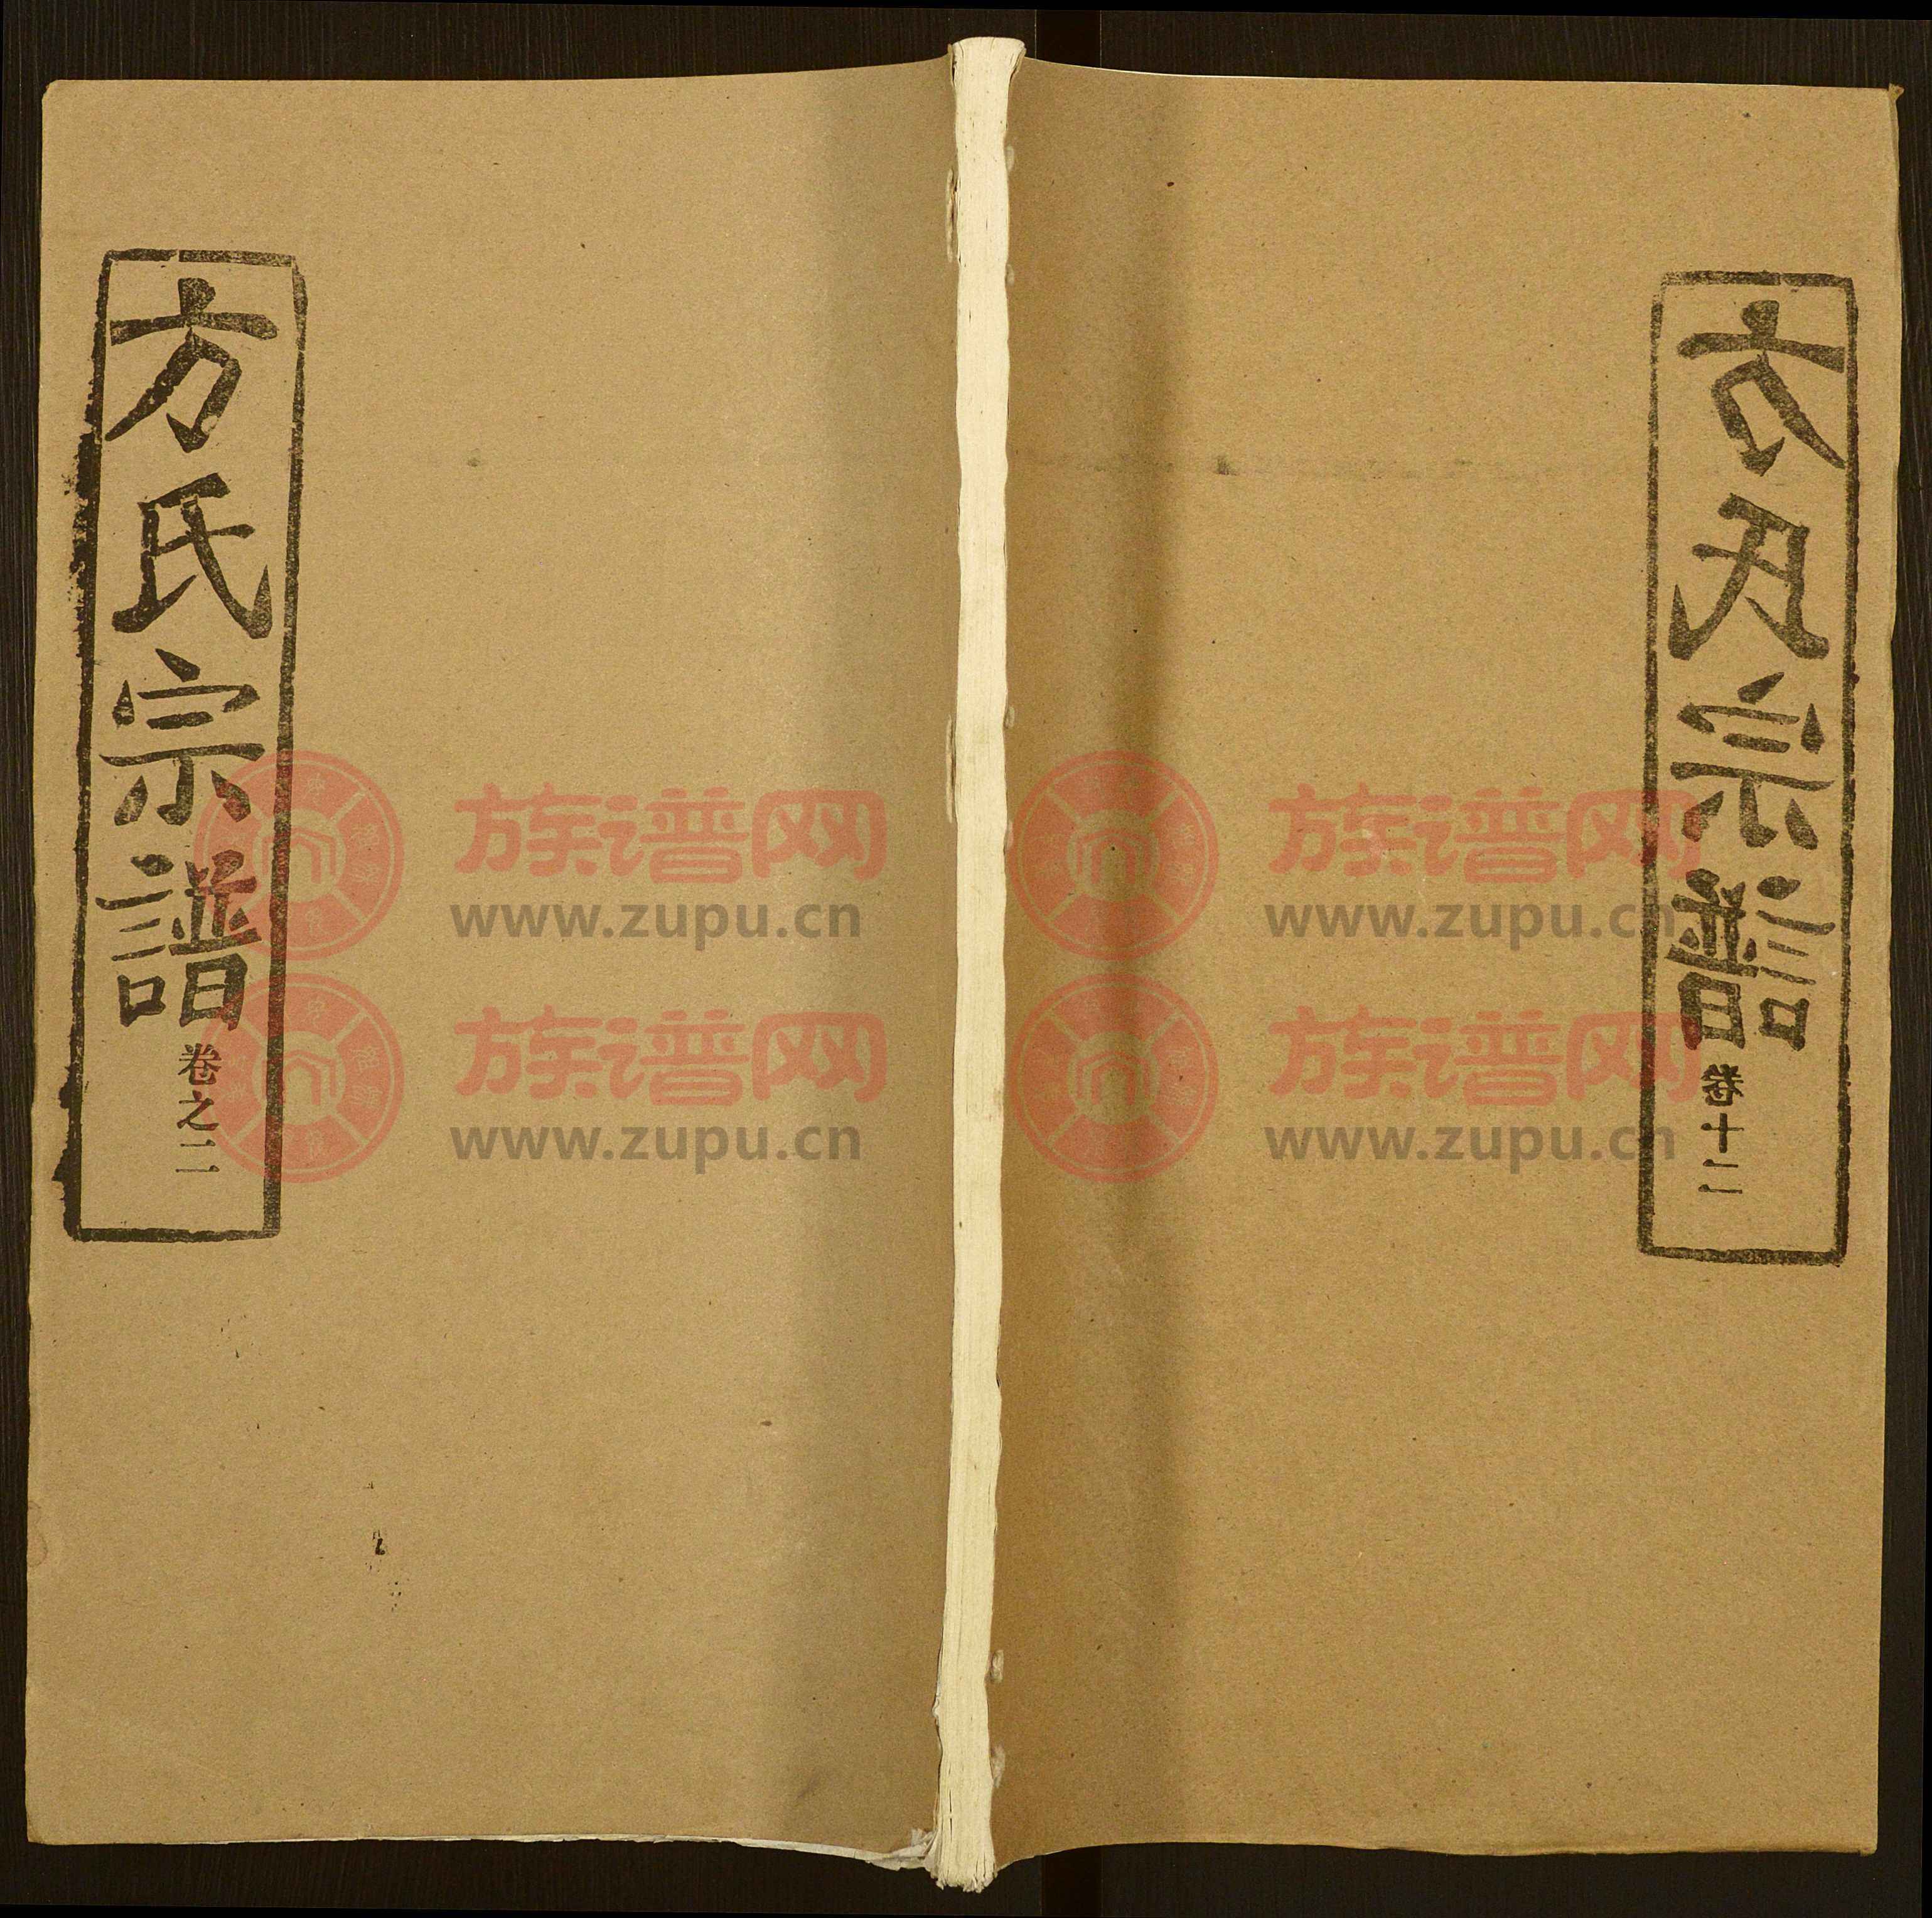 方氏宗譜
卷之二
方氏宗譜
卷十二
族谱网
www.zupu.cn
族谱网
www.zupu.cn
族谱网
www.zupu.cn
族谱网
www.zupu.cn